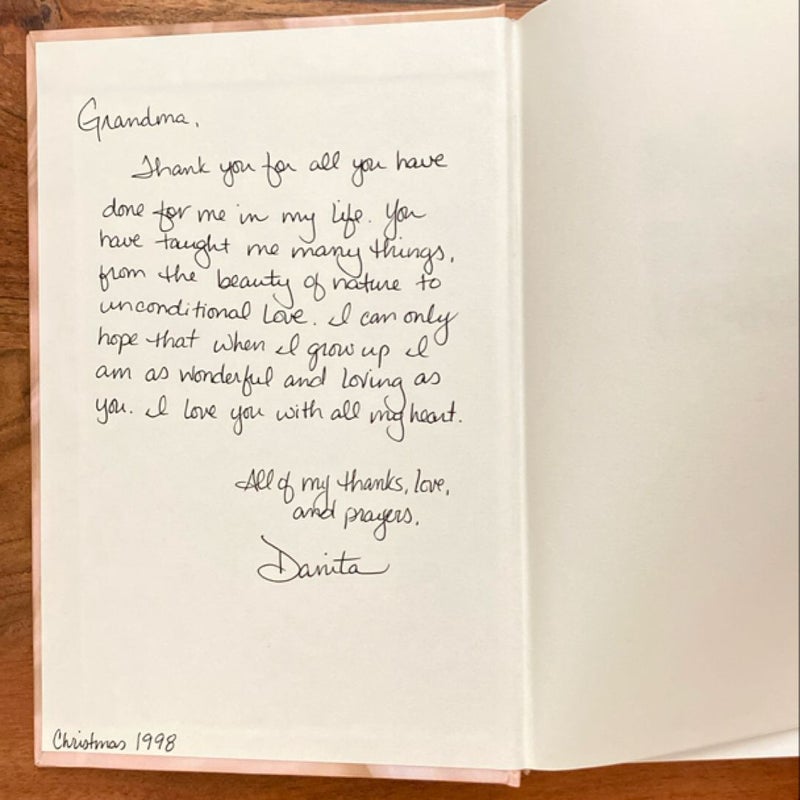 Grandma,
Thank you for all you have
done for me in my life. You
have taught me many things,
from the beauty of nature to
unconditional love. I can only
hope that when I grow up I
am as wonderful and loving as
you. I love you with all my heart.
All of my thanks, love,
and prayers,
Danita
Christmas 1998